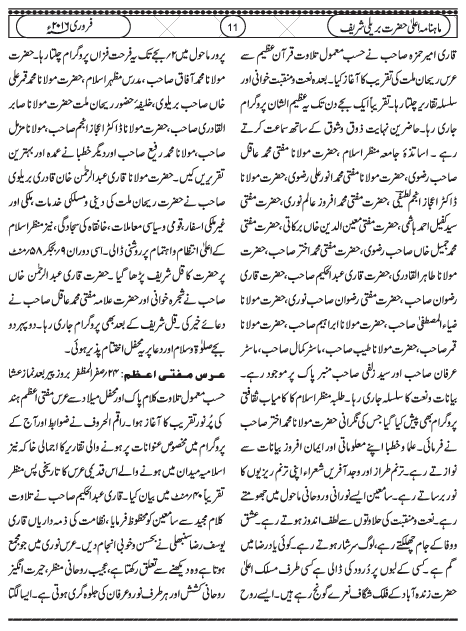 ماہنامہ اعلیٰ حضرت بریلی شریف
11
فروری ۲۰۱۶ء
قاری امیر حمزہ صاحب نے حسب معمول تلاوت قرآن عظیم سے
عرس ریحان ملت کی تقریب کا آغاز کیا۔ بعدہ نعت و منقبت خوانی اور
سلسلہ تقاریر چلتا رہا۔ تقریباً ایک بجے دن تک یہ عظیم الشان پروگرام
جاری رہا۔ حاضرین نہایت ذوق و شوق کے ساتھ سماعت کرتے
رہے ۔ اساتذۂ جامعہ منظر اسلام ، حضرت مولانا مفتی محمد عاقل
صاحب رضوی، حضرت مولانا مفتی محمد انور علی رضوی، حضرت مولانا
ڈاکٹر اعجاز انجم لطیفی، حضرت مفتی محمد افروز عالم نوری، حضرت مفتی
سید کفیل احمد ہاشمی، حضرت مفتی معین الدین خاں برکاتی، حضرت مفتی
محمد جمیل خاں صاحب رضوی، حضرت مفتی محمد اختر صاحب، حضرت
مولانا طاہر القادری، حضرت قاری عبدالحکیم صاحب، حضرت قاری
رضوان صاحب، حضرت مفتی رضوان صاحب نوری، حضرت مولانا
ضیاء المصطفیٰ صاحب، حضرت مولانا ابراہیم صاحب، حضرت مولانا
قمر صاحب، حضرت مولانا طیب صاحب، ماسٹر کمال صاحب، ماسٹر
عرفان صاحب اور سید زلفی صاحب منبر پاک پر موجود رہے۔
بیانات و نعت کا سلسلہ جاری رہا۔ طلبہ منظر اسلام کا کامیاب ثقافتی
پروگرام بھی پیش کیا گیا جس کی نگرانی حضرت مولانا محمد اختر صاحب
نے فرمائی۔ علما و خطبا اپنے معلوماتی اور ایمان افروز بیانات سے
نوازتے رہے۔ ترنم طراز اور وجد آفریں شعراء اپنی ترنم ریزیوں کا
نور برساتے رہے۔ سامعین ایسے نورانی و روحانی ماحول میں جھومتے
رہے۔ نعت و منقبت کی حلاوتوں سے لطف اندوز ہوتے رہے۔ عشق
و وفا کے جام چھلکتے رہے، لوگ سرشار ہوتے رہے۔ کوئی یاد رضا میں
گم ہے۔ کسی کے لبوں پر درود کی ڈالی ہے کسی طرف مسلک اعلیٰ
حضرت زندہ آباد کے فلک شگاف نعرے گونج رہے ہیں۔ ایسے روح
پرور ماحول میں ۲ بجے تک یہ فرحت فزاں پروگرام چلتا رہا۔ حضرت
مولانا محمد آفاق صاحب، مدرس مظہر اسلام، حضرت مولانا قمر علی
خاں صاحب بریلوی، خلیفۂ حضور ریحان ملت حضرت مولانا صابر
القادری صاحب، حضرت مولانا ڈاکٹر اعجاز انجم صاحب، مولانا مزمل
صاحب، مولانا محمد رفیع صاحب اور دیگر خطبا نے عمدہ اور بہترین
تقریریں کیں۔ حضرت مولانا قاری عبدالرحمٰن خان قادری بریلوی
صاحب نے حضرت ریحان ملت کی دینی و مسلکی خدمات ملکی اور
غیر ملکی اسفار، قومی و سیاسی معاملات، خانقاہ کی سجادگی، نیز منظر اسلام
کے اعلیٰ انتظام و اہتمام پر روشنی ڈالی۔ اسی دوران ۹ بجکر ۵۸ منٹ
پر حضرت کا قل شریف پڑھا گیا۔ حضرت قاری عبدالرحمٰن خاں
صاحب نے شجرہ خوانی اور حضرت علامہ مفتی محمد عاقل صاحب نے
دعائے خیر کی۔ قل شریف کے بعد بھی پروگرام جاری رہا۔ دو پہر دو
بجے صلوٰۃ و سلام اور دعا پر یہ محفل اختتام پذیر ہوئی۔
عرس مفتی اعظم: ۲۳؍ صفر المظفر بروز پیر بعد نماز عشا
حسب معمول تلاوت کلام پاک اور محفل میلاد سے عرس مفتی اعظم ہند
کی پُر نور تقریب کا آغاز ہوا۔ راقم الحروف نے ضوابط اور آج کے
پروگرام میں مخصوص عنوانات پر ہونے والی تقاریر کا اجمالی خاکہ نیز
اسلامیہ میدان میں ہونے والے اس قدیمی عرس کا تاریخی پس منظر
تقریباً ۴۰ منٹ میں بیان کیا۔ قاری عبدالحکیم صاحب نے تلاوت
کلام مجید سے سامعین کو محظوظ فرمایا، نظامت کی ذمہ داریاں قاری
یوسف رضا سنبھلی نے بحسن و خوبی انجام دیں۔ عرس نوری میں جو مجمع
ہوتا ہے وہ دیکھنے سے تعلق رکھتا ہے، عجیب روحانی منظر، حیرت انگیز
روحانی کشش اور ہر طرف نور و عرفان کی جلوہ گری ہوتی ہے۔ ایسا لگتا